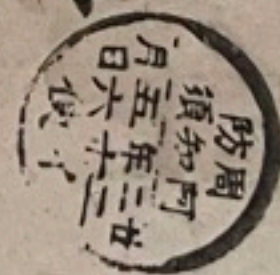 周防
阿知須
廿二年五月
二十六日
便